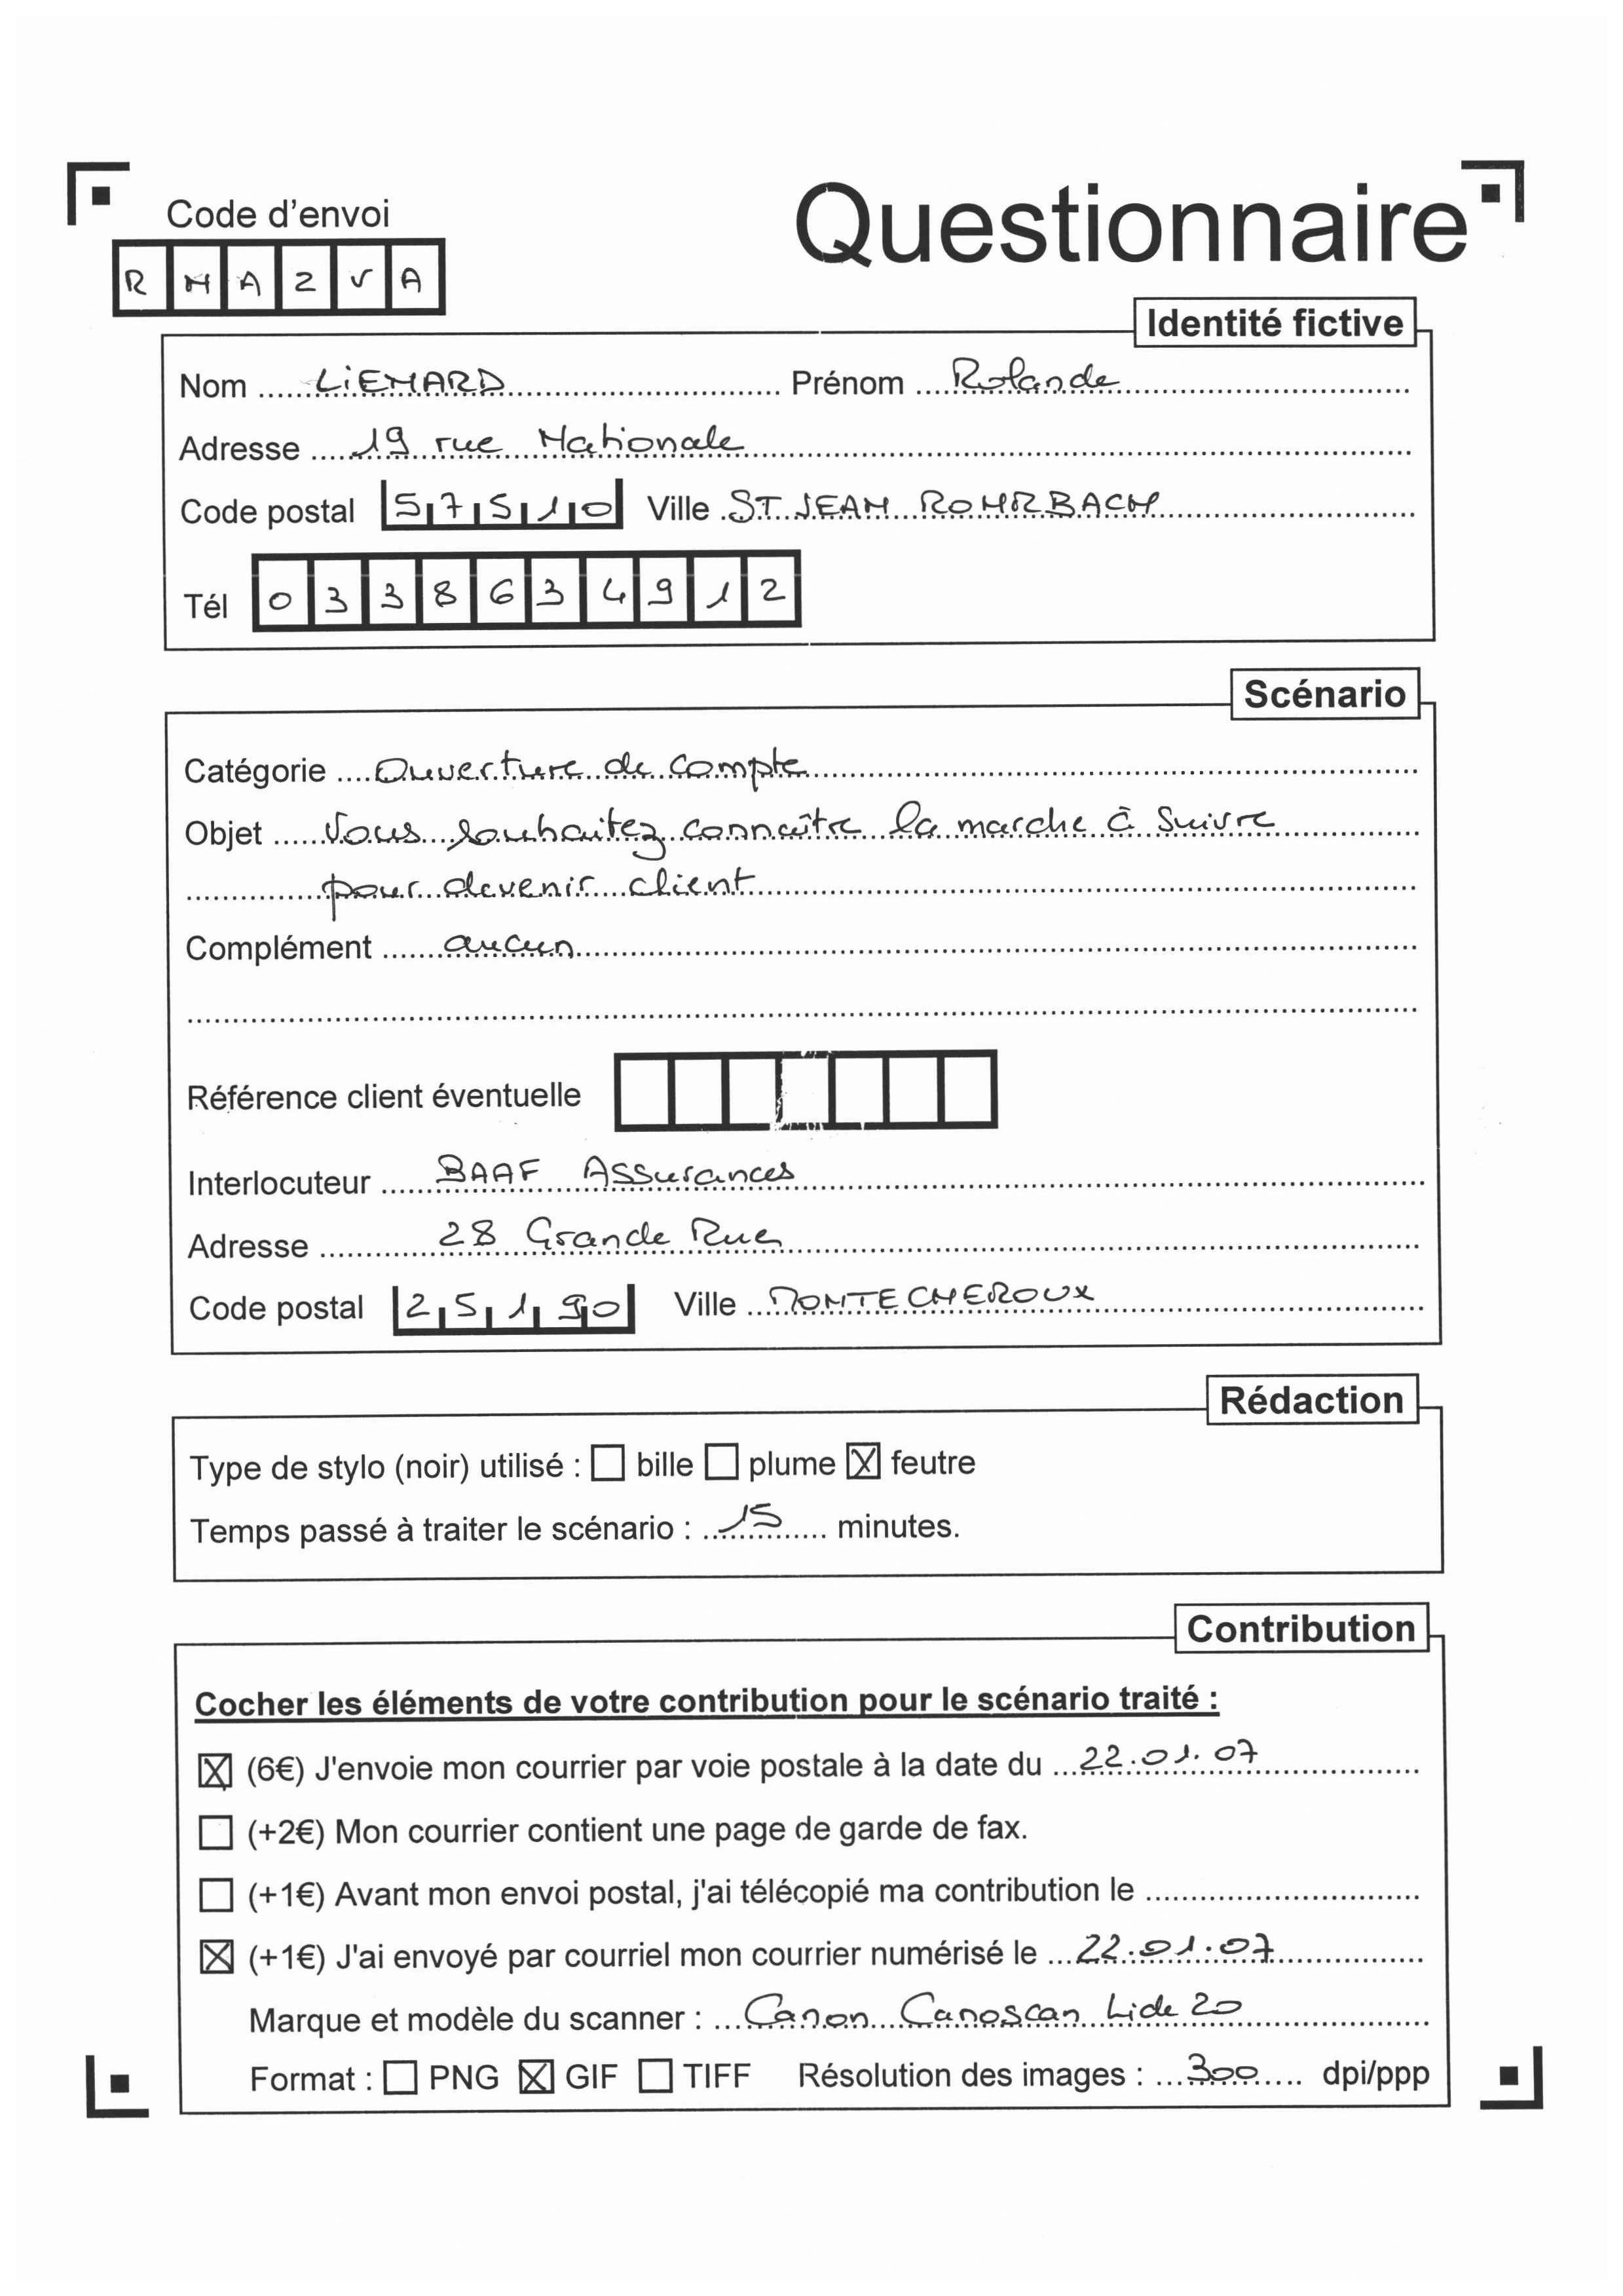 Code d'envoi
RNAZVA
Questionnaire
Identité fictive
Nom LiENARD Prénom Rolande
Adresse 19 rue Nationale
Code postal 57510 Ville ST JEAN ROHRBACH
Tél 0338634912
Scénario
Catégorie Ouverture de compte
Objet Vous souhaitez connaître la marche à suivre
pour devenir client
Complément aucun
Référence client éventuelle
Interlocuteur BAAF Assurances
Adresse 28 Grande Rue
Code postal 25190 Ville MONTECHEROUX
Rédaction
Type de stylo (noir) utilisé : bille plume X feutre
Temps passé à traiter le scénario : 15 minutes.
Contribution
Cocher les éléments de votre contribution pour le scénario traité :
X (6€) J'envoie mon courrier par voie postale à la date du 22.01.07
(+2€) Mon courrier contient une page de garde de fax.
(+1€) Avant mon envoi postal, j'ai télécopié ma contribution le
X (+1€) J'ai envoyé par courriel mon courrier numérisé le 22.01.07
Marque et modèle du scanner : Canon Canoscan Lide 20
Format : PNG X GIF TIFF Résolution des images : 300 dpi/ppp